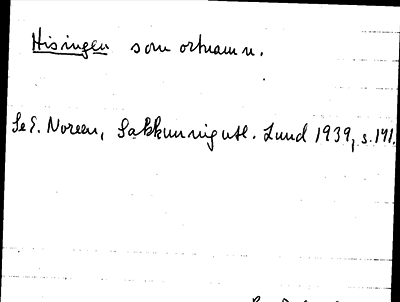 Hisingen som ortnamn.
Se E. Noreen, Sakkunnigutl. Lund 1939, s. 191.